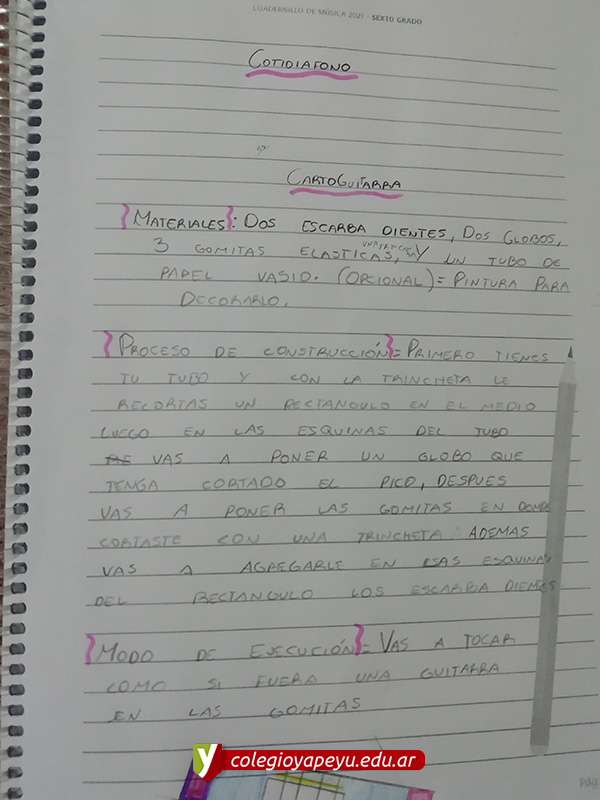 CUADERNILLO DE MÚSICA 2021 - SEXTO GRADO
COTIDIAFONO
CARTOGUITARRA
MATERIALES: DOS ESCARBA DIENTES, DOS GLOBOS,
3 GOMITAS ELASTICAS, UNA TRINCHETA Y UN TUBO DE
PAPEL VASIO. (OPCIONAL)= PINTURA PARA
DECORARLO.
PROCESO DE CONSTRUCCIÓN= PRIMERO TIENES
TU TUBO Y CON LA TRINCHETA LE
RECORTAS UN RECTANGULO EN EL MEDIO
LUEGO EN LAS ESQUINAS DEL TUBO
VAS A PONER UN GLOBO QUE
TENGA CORTADO EL PICO, DESPUES
VAS A PONER LAS GOMITAS EN DONDE
CORTASTE CON UNA TRINCHETA ADEMAS
VAS A AGREGARLE EN ESAS ESQUINAS
DEL RECTANGULO LOS ESCARBA DIENTES
MODO DE EJECUCIÓN= VAS A TOCAR
COMO SI FUERA UNA GUITARRA
EN LAS GOMITAS
y colegioyapeyu.edu.ar
PÁG